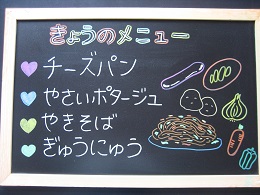 きょうのメニュー
チーズパン
やさいポタージュ
やきそば
ぎゅうにゅう